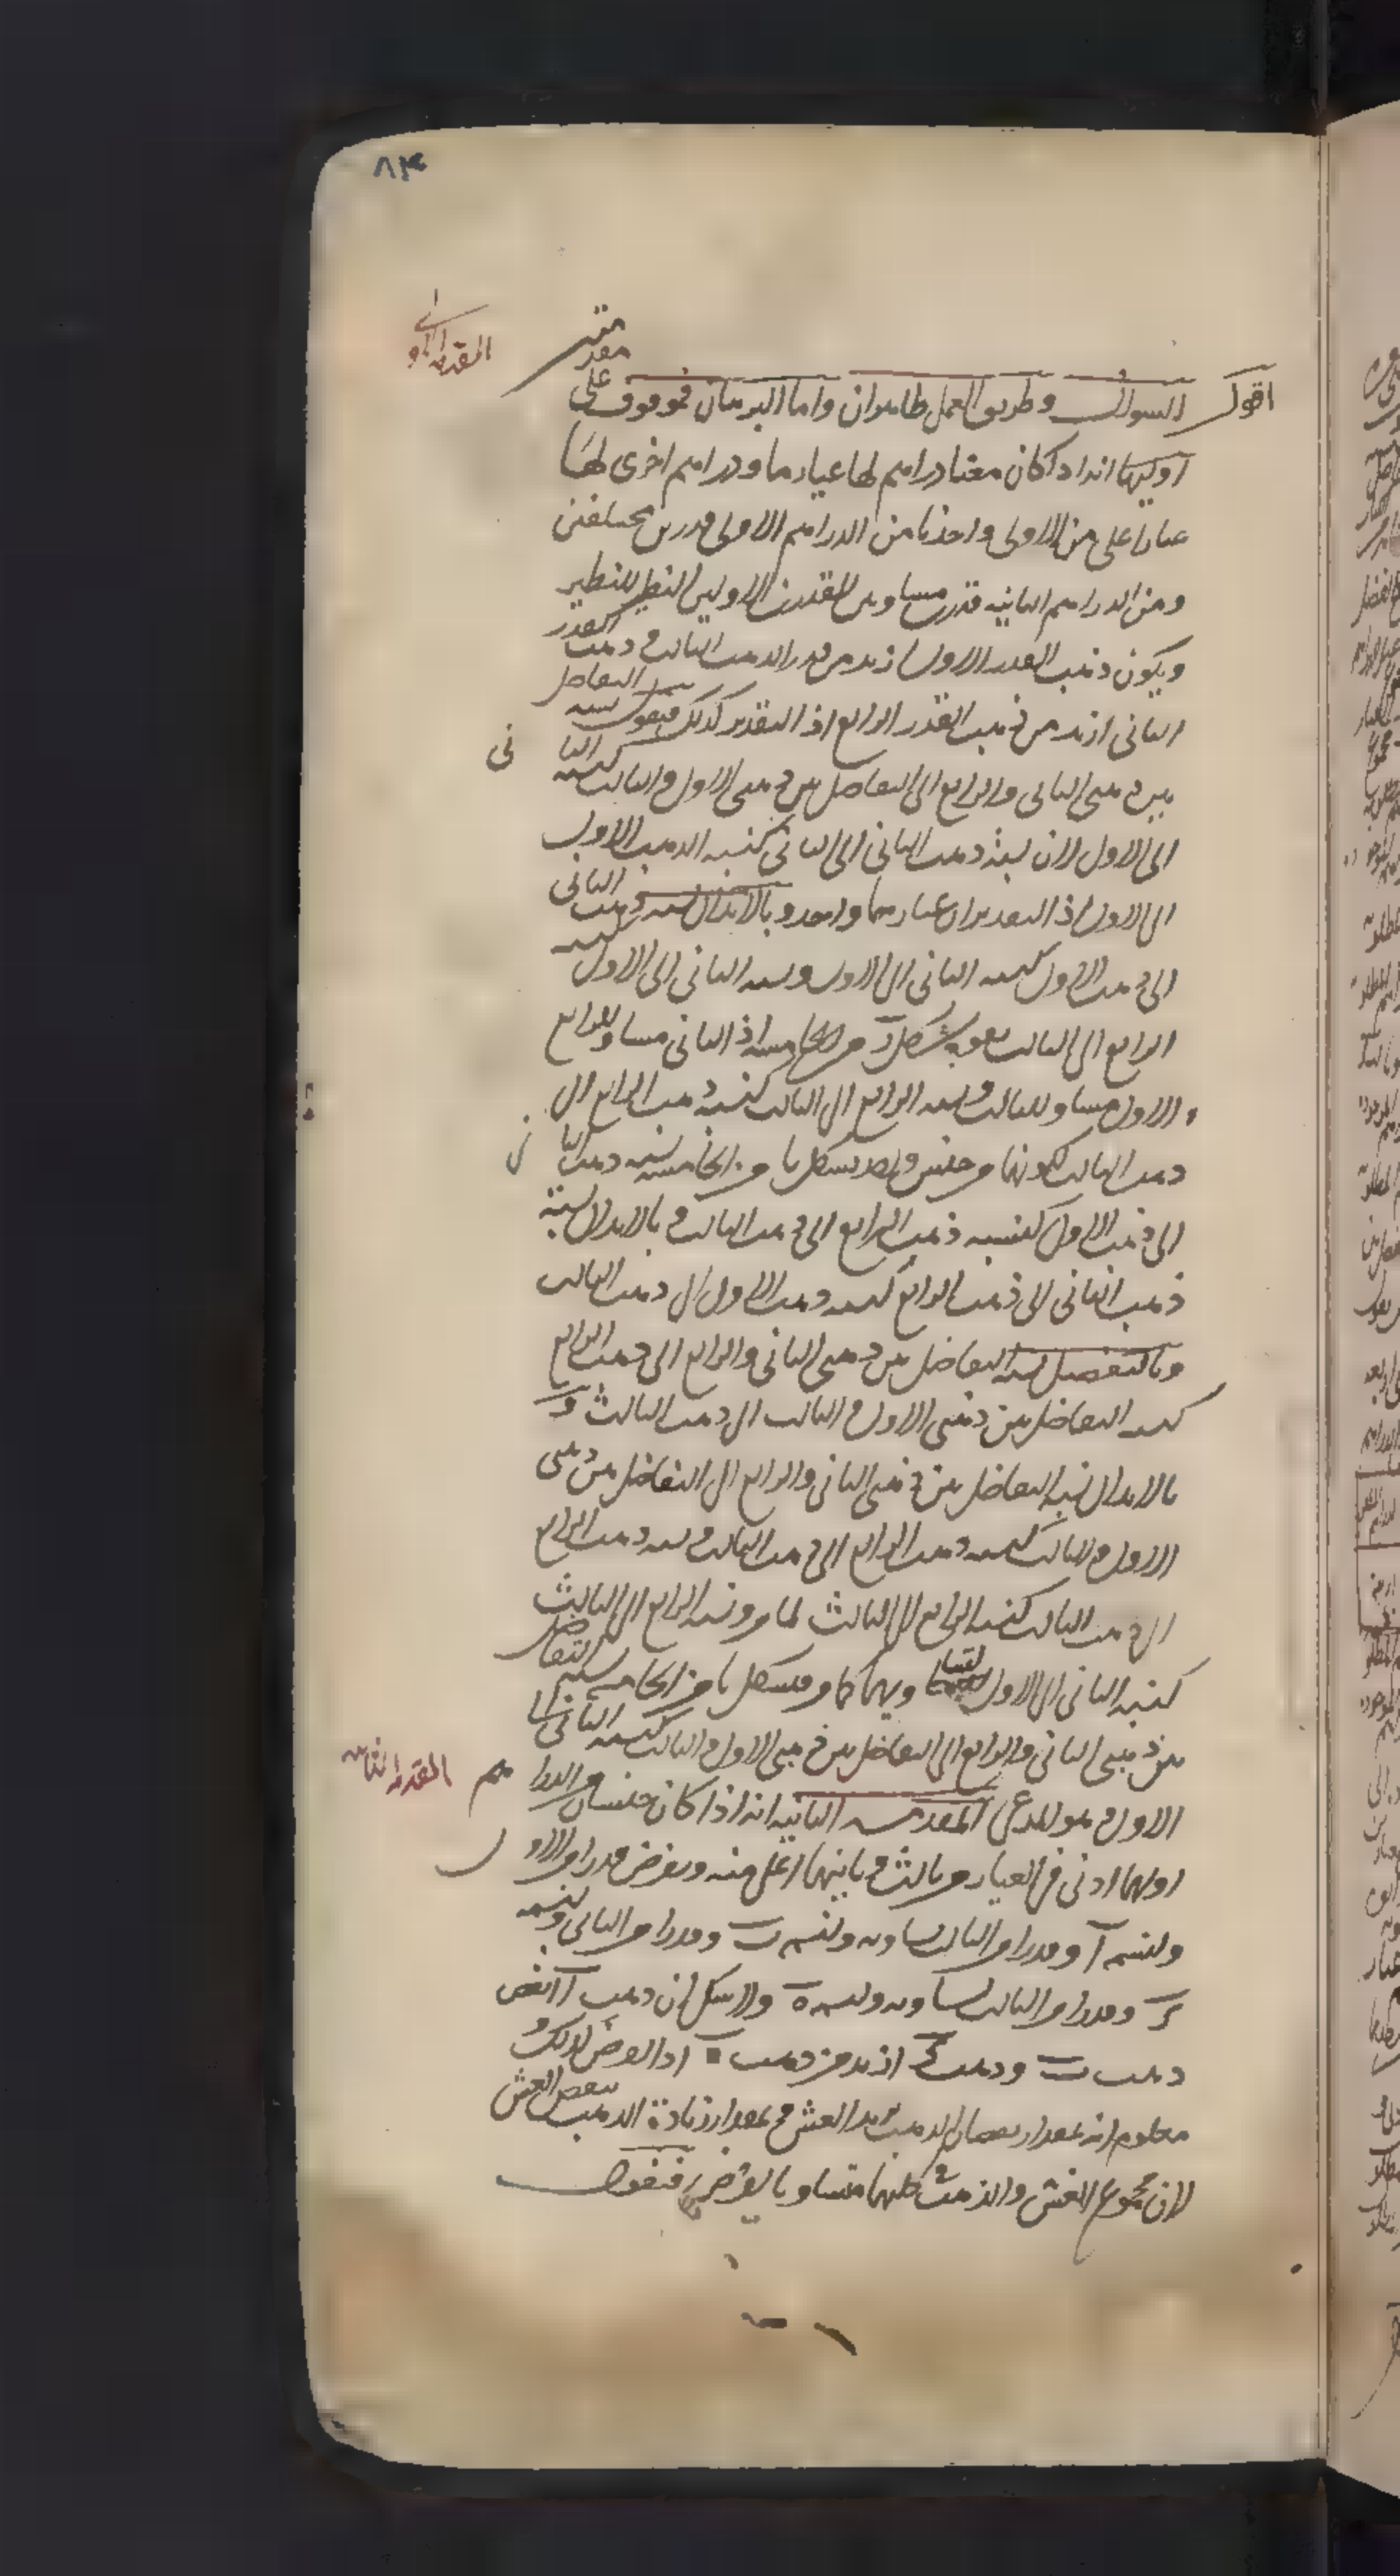 ٨٣
المقدمة الاولى
اقول السوال وطريق العمل ظاهران واما البرهان فموقوف على مقدمتين
اوليهما انه اذا كان معنا دراهم لها عيار ما ودراهم اخرى لها
عيار اعلى من الاولى واخذنا من الدراهم الاولى قدرين مختلفين
ومن الدراهم الثانيه قدرين مساويين للقدرين الاولين النظير للنظير
ويكون ذهب القدر الاول ازيد من قدر الذهب الثالث وذهب القدر
الثانى ازيد من ذهب القدر الرابع اذ التقدير كذلك فنقول نسبه التفاضل
بين ذهبى الثانى والرابع الى التفاضل بين ذهبى الاول والثالث كنسبه الثانى
الى الاول لان نسبة ذهب الثانى الى الثانى كنسبه الذهب الاول
الى الاول اذ التقدير ان عيارهما واحد وبالابدال نسبه ذهب الثانى
الى ذهب الاول كنسبه الثانى الى الاول ونسبه الثانى الى الاول كنسبه
الرابع الى الثالث بقوة شكل من الخامسه اذ الثانى مساو للرابع
والاول مساو للثالث ونسبه الرابع الى الثالث كنسبه ذهب الرابع الى
ذهب الثالث لكونهما من جنس واحد بشكل يا من الخامسه نسبه ذهب الثانى
الى ذهب الاول كنسبه ذهب الرابع الى ذهب الثالث وبالابدال نسبة
ذهب الثانى الى ذهب الرابع كنسبه ذهب الاول الى ذهب الثالث
وبالتفصيل نسبه التفاضل بين ذهبى الثانى والرابع الى ذهب الرابع
كنسبه التفاضل بين ذهبى الاول والثالث الى ذهب الثالث و
بالابدال نسبه التفاضل بين ذهبى الثانى والرابع الى التفاضل بين ذهبى
الاول والثالث كنسبه ذهب الرابع الى ذهب الثالث ونسبه ذهب الرابع
الى ذهب الثالث كنسبه الرابع الى الثالث لما مر ونسبه الرابع الى الثالث
كنسبه الثانى الى الاول لتساويهما كما مر فبشكل يا من الخامسه نسبه التفاضل
بين ذهبى الثانى والرابع الى التفاضل بين ذهبى الاول والثالث كنسبه الثانى الى
الاول وهو المدعى المقدمه الثانيه انه اذا كان جنسان من الدراهم
المقدمه الثانيه
اولهما ادنى فى العيار من ثالث وثانيهما اعلى منه ونفرض قدرا من الاول
ولنسمه آ وقدرا من الثالث يساويه ولنسمه ب وقدرا من الثانى ولنسمه
ج وقدرا من الثالث يساويه ولنسمه ه ولا شك ان ذهب آ انقص
ذهب ب وذهب ج ازيد من ذهب ه اذ الفرض كذلك و
معلوم انه بمقدار نقصان الذهب يزيد الغش وبمقدار زيادة الذهب ينقص الغش
لان مجموع الغش والذهب كليهما متساو بالفرض فنقول